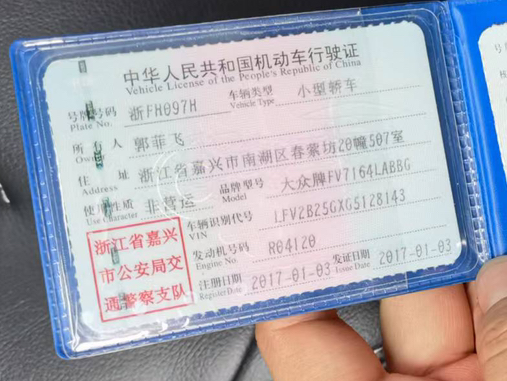 中华人民共和国机动车行驶证
Vehicle License of the People's Republic of China
号牌号码 浙FH097H 车辆类型 小型轿车
Plate No. Vehicle Type
所有人 郭菲飞
Owner
住址 浙江省嘉兴市南湖区春絮坊20幢507室
Address
使用性质 非营运 品牌型号 大众牌FV7164LABBG
Use Character Model
浙江省嘉兴
市公安局交
通警察支队
车辆识别代号 LFV2B25GXG5128143
VIN
发动机号码 R04120
Engine No.
注册日期 2017-01-03 发证日期 2017-01-03
Register Date Issue Date